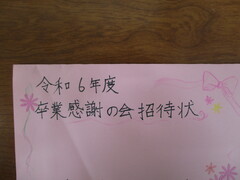 令和6年度
卒業感謝の会招待状